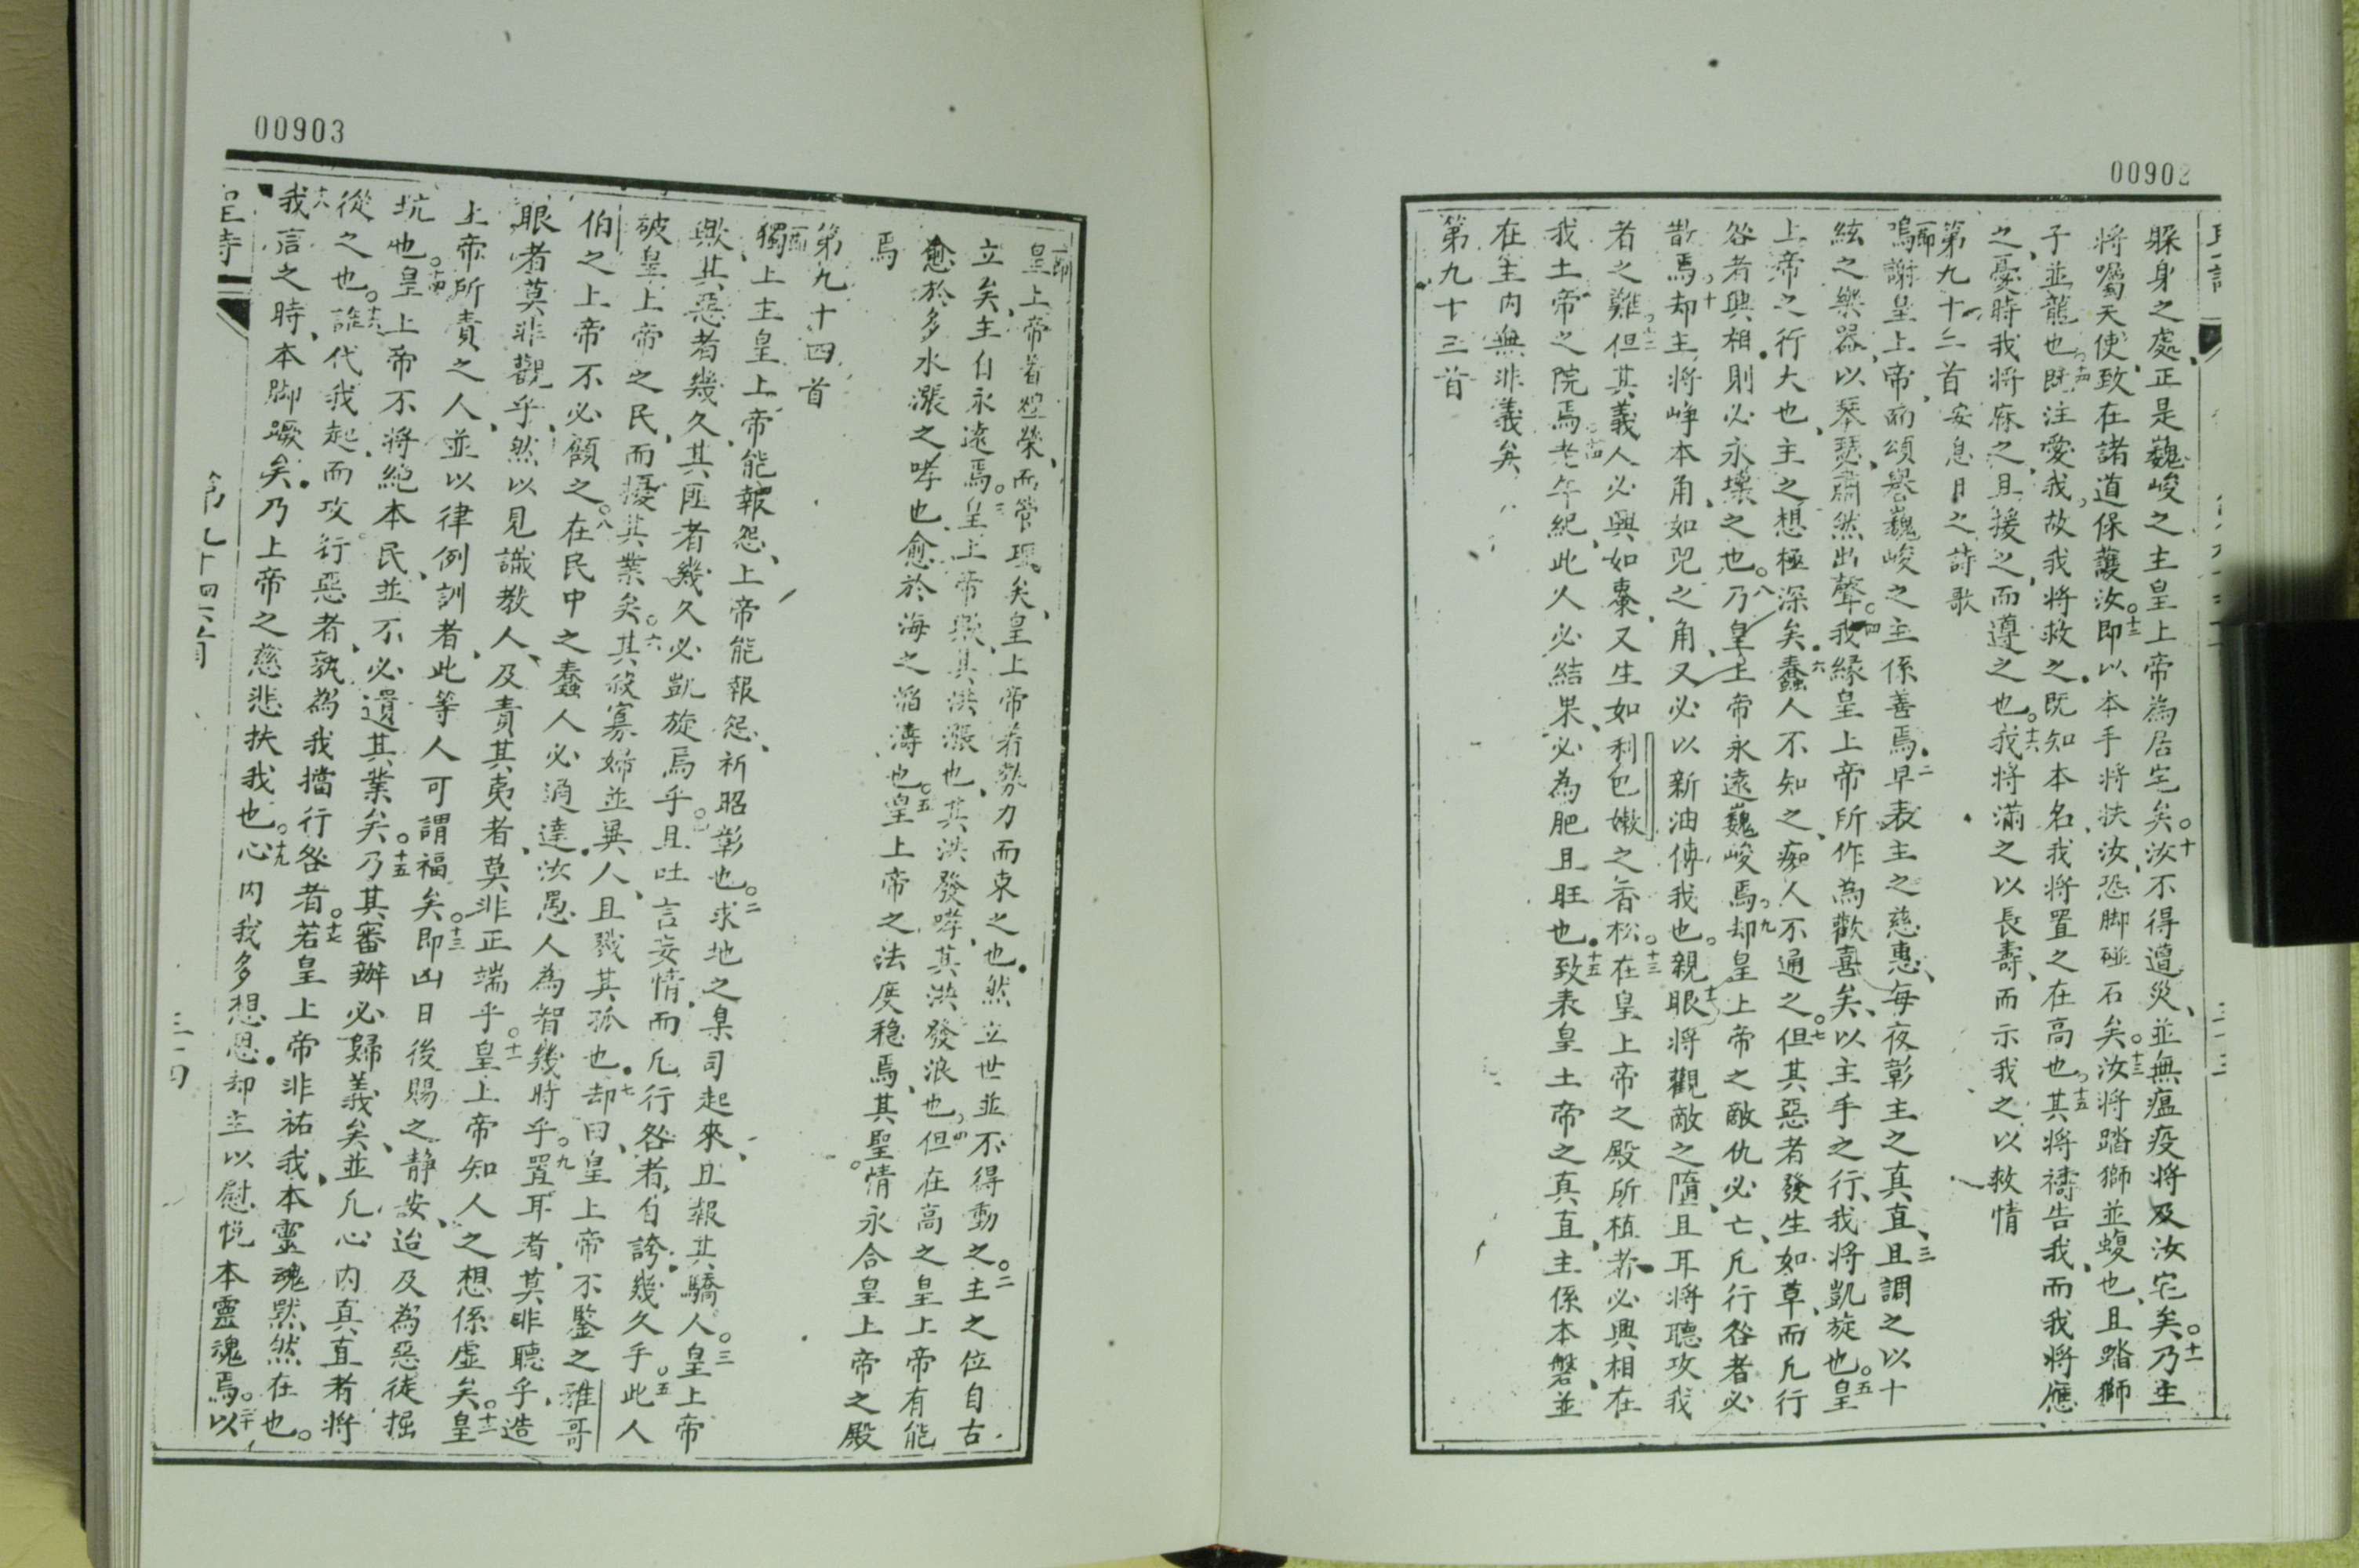 00902
躱身之處、正是巍峻之主皇上帝為居宅矣。十汝不得遭災、並無瘟疫將及汝宅矣。十一乃主
將囑天使、致在諸道保護汝。十二即以本手將扶汝、恐脚碰石矣。十三汝將踏獅並蝮也、且踏獅
子並龍也。十四既注愛我、故我將救之。既知本名、我將置之在高也。十五其將禱告我、而我將應
之、憂時我將庥之、且援之、而遵之也。十六我將滿之以長壽、而示我之以救情
第九十二首 安息日之詩歌
一節嗚謝皇上帝、而頌譽巍峻之主係善焉。二早表主之慈惠、每夜彰主之真直、三且調之以十
絃之樂器、以琴瑟肅然出聲。四我緣皇上帝所作為歡喜矣、以主手之行、我將凱旋也。五皇
上帝之行大也、主之想極深矣。六蠢人不知之、痴人不通之。七但其惡者發生如草、而凡行
咎者興相、則必永壞之也。八乃皇上帝永遠巍峻焉。九却皇上帝之敵仇必亡、凡行咎者必
散焉。十却主將崢本角如兕之角、又必以新油傅我也。十一親眼將觀敵之墮、且耳將聽攻我
者之難。十二但其義人必興如棗、又生如利巴嫩之香松。十三在皇上帝之殿所植者、必興相在
我上帝之院焉。十四老年紀此人必結果、必為肥且旺也。十五致表皇上帝之真直、主係本磐、並
在主內無非義矣
第九十三首
00903
一節皇上帝着煌榮、而管理矣、皇上帝着勢力而束之也。然立世並不得動之。二主之位自古
立矣、主自永遠焉。三皇上帝歟、其洪漲也、其洪發哮、其洪發浪也。四但在高之皇上帝有能
愈於多水漲之哮也、愈於海之滔濤也。五皇上帝之法度穩焉、其聖情永合皇上帝之殿
焉
第九十四首
一節獨上主皇上帝、能報怨、上帝能報怨、祈昭彰也。二求地之臬司起來、且報其驕人。三皇上帝
歟、其惡者幾久、其匪者幾久必凱旋焉乎。四且吐言妄情、而凡行咎者、自誇幾久乎。五此人
破皇上帝之民、而擾其業矣。六其殺寡婦並異人、且戮其孤也。七却曰、皇上帝不鑒之、雅哥
伯之上帝不必顧之。八在民中之蠢人必通達、汝愚人為智幾時乎。九置耳者、莫非聽乎、造
眼者莫非觀乎、然以見識教人、及責其夷者、莫非正端乎。十一皇上帝知人之想係虛矣。十二皇
上帝所責之人、並以律例訓者、此等人可謂福矣。十三即凶日後賜之靜安、迨及為惡徒掘
坑也。十四皇上帝不將絶本民、並不必遺其業矣。十五乃其審辦必歸義矣、並凡心內真直者將
從之也。十六誰代我起而攻行惡者、孰為我擋行咎者。十七若皇上帝非祐我、本靈魂默然在也。
十八我言之時、本脚蹶矣。乃上帝之慈悲扶我也。十九心內我多想思。却主以慰悅本靈魂焉。二十以
第九十四首